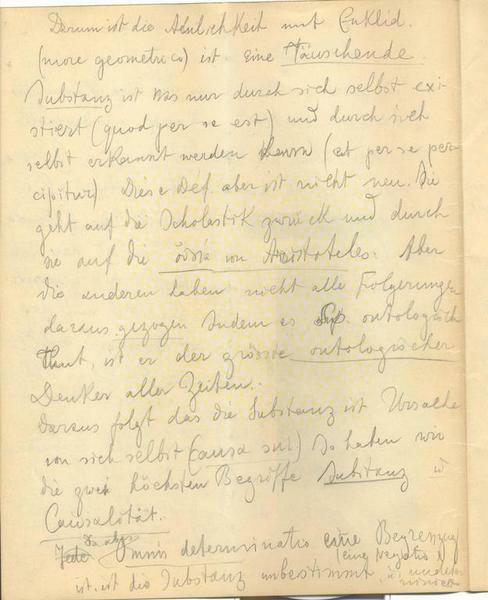 Darum ist die Aenlichkeit mit Euklid.
(more geometrico) ist eine täuschende.
Substanz ist was nur durch sich selbst exi-
stiert (quod per se est) und durch sich
selbst erkannt werden kann (et per se per-
cipitur) Diese Def. aber ist nicht neu. Sie
geht auf die Scholastik zurück und durch
sie auf die οὐσία von Aristoteles. Aber
die anderen haben nicht alle Folgerungen
daraus gezogen Indem es Sp. ontologisch
thut, ist er der grösste ontologischer
Denker aller Zeiten.
Daraus folgt das die Substanz ist Ursache
von sich selbst (causa sui) So haben wir
die zwei höchsten Begriffe Substanz u
Causalität.
Da aber
Jede Omnis determinatio eine Begrenzung
(eine Negatio)
ist, ist die Substanz unbestimmt, u.